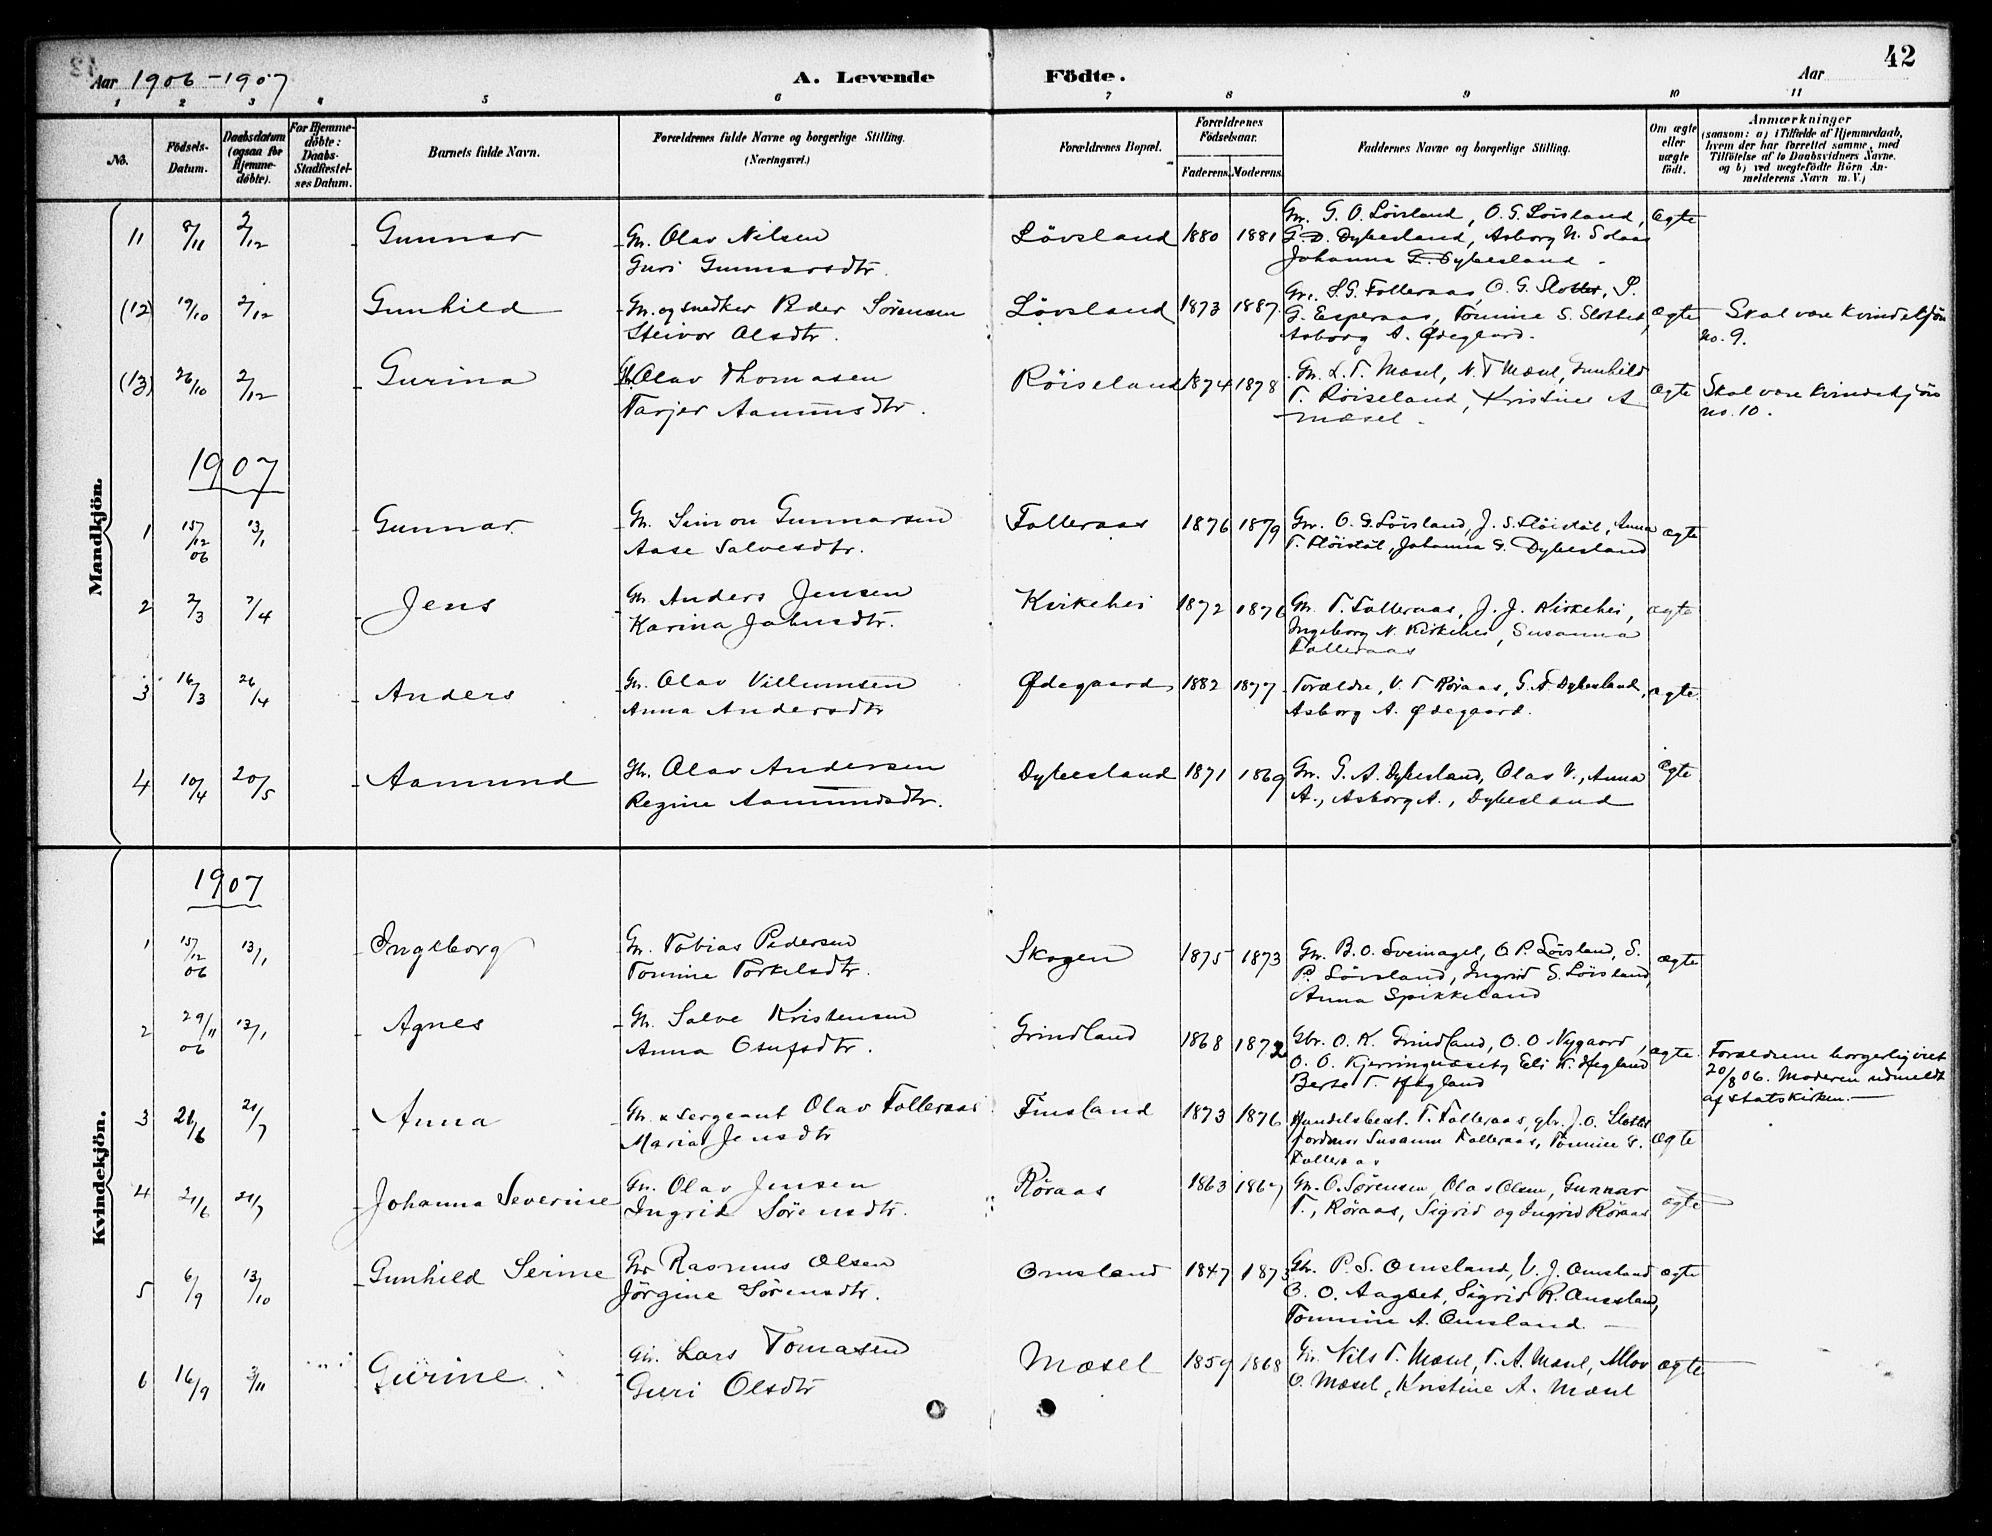 42
Aar 1906-1907 A. Levende Födte. Aar
1 2 3 4 5 6 7 8 9 10 11
No.
Födsels-Datum.
Daabsdatum (ogsaa for Hjemmedöbte).
For Hjemmedöbte: Daabs-Stadfæstelses Datum.
Barnets fulde Navn.
Forældrenes fulde Navne og borgerlige Stilling. (Næringsvei.)
Forældrenes Bopæl.
Forældrenes Födselsaar.
Faderens. Moderens.
Faddernes Navne og borgerlige Stilling.
Om ægte eller uægte födt.
Anmærkninger
(saasom: a) i Tilfælde af Hjemmedaab,
hvem der har forrettet samme, med
Tilföielse af to Daabsvidners Navne.
og b) ved uægtefödte Börn Anmelderens Navn m. V.)
Mandkjön.
11 8/11 2/12 Gunnar Gr. Olav Nilsen Løvsland 1880 1881 Gr. G. O. Lövsland, O. G. Lövsland, ægte
Guri Gunnarsdtr. G. D. Dybesland, Asborg N. Solaas
Johanna G. Dybesland
(12) 19/10 2/12 Gunhild Gr. og snedker Peder Sørensen Løvsland 1873 1887 Gr. S. G. Folleraas, O. G. Slottet, S. ægte Skal være Kvindekjøn
Steivor Olsdtr. G. Esperaas, Tomine S. Slottet, no. 9.
Asborg A. Ødegaard.
(13) 26/10 2/12 Gurina Gr. Olav Thomasen Röiseland 1874 1878 Gr. L. T. Mæsel, N. T. Mæsel, Gunhild ægte Skal være Kvindekjøn
Tarjer Aamundsdtr. T. Röiseland, Kristine A no. 10.
Mæsel.
1907
1 15/12 06 13/1 Gunnar Gr. Simon Gunnarsen Folleraas 1876 1879 Gr. O. G. Lövsland, J. S. Flöistöl, Anna ægte
Aase Salvesdtr. T. Flöistöl, Johanna G. Dybesland
2 2/3 7/4 Jens Gr. Anders Jensen Kirkehei 1872 1876 Gr. T. Folleraas, J. J. Kirkehei, ægte
Karina Jahnsdtr. Ingeborg N. Kirkehei, Susanna
Folleraas
3 16/3 26/4 Anders Gr. Olav Villumsen Ødegaard 1882 1877 Forældre, V. T. Röraas, G. A. Dybesland, ægte
Anna Andersdtr Asborg A. Ødegaard.
4 10/4 20/5 Aamund Gr. Olav Andersen Dybesland 1871 1869 Gr. G. A. Dybesland, Olav V., Anna ægte
Regine Aamundsdtr. A., Asborg A., Dybesland
Kvindekjön.
1907
1 15/12 06 13/1 Ingeborg Gr. Tobias Pedersen Skogen 1875 1873 Gr. B. O. Sveinagel, O. P. Lövsland, S. ægte
Tomine Torkelsdtr. P. Lövsland, Ingrid S. Lövsland,
Anna Spikkeland
2 29/11 06 13/1 Agnes Gr. Salve Kristensen Grindland 1868 1872 Gbr. O. K. Grindland, O. O Nygaard, ægte Forældrene borgerlig viet
Anna Osufsdtr. O. O. Kjerringnæset, Eli K. Hegland 20/8 06. Moderen udmeldt
Berte T. Hegland af Statskirken.
3 21/6 21/7 Anna Gr. & sergeant Olav Folleraas Finsland 1873 1876 Handelsbest. T. Folleraas, gbr. J. O. Slottet ægte
Maria Jensdtr Jordmor Susanne Folleraas, Tomine G.
Folleraas
4 21/6 21/7 Johanna Severine Gr. Olav Jensen Röraas 1863 1867 Gr. O. Sørensen, Olav Olsen, Gunnar ægte
Ingrid Sørensdtr. T., Röraas, Sigrid og Ingrid Röraas
5 6/9 13/10 Gunhild Serine Gr. Rasmus Olsen Omsland 1847 1873 Gbr. P. S. Omsland, V. J. Omsland ægte
Jørgine Sørensdtr. O. O. Aagset, Sigrid R. Omsland,
Tomine A. Omsland.
6 16/9 3/11 Gurine Gr. Lars Tomasen Mæsel 1859 1868 Gr. Nils T. Mæsel, T. A. Mæsel, ægte
Guri Olsdtr O. Mæsel, Kristine A. Mæsel